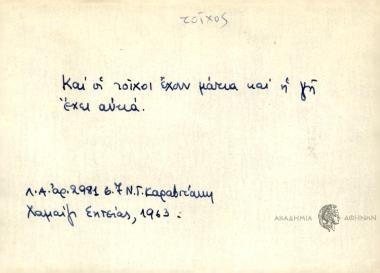 τοῖχος
Καί οἱ τοῖχοι ἔχουν μάτια καί ἡ γῆ
ἔχει αὐτιά.
Λ.Α. ἀρ. 2981 σ. 7 Ν.Γ. Καραβιτάκη
Χαμαίζι Σητείας, 1963.
ΑΚΑΔΗΜΙΑ ΑΘΗΝΩΝ